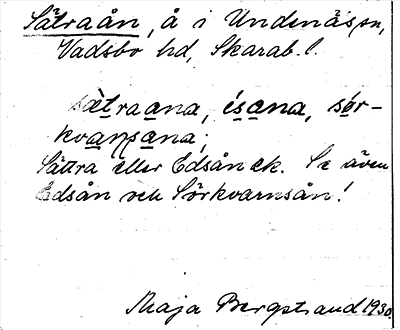 Sätraån, å i Undenäs sn,
Vadsbo hd, Skarab. l.
sätraana, ísana, sór-
kvaṉsana;
Sättra eller Edsån ek. Se även
Edsån och Sörkvarnsån!
Maja Bergstrand 1930.